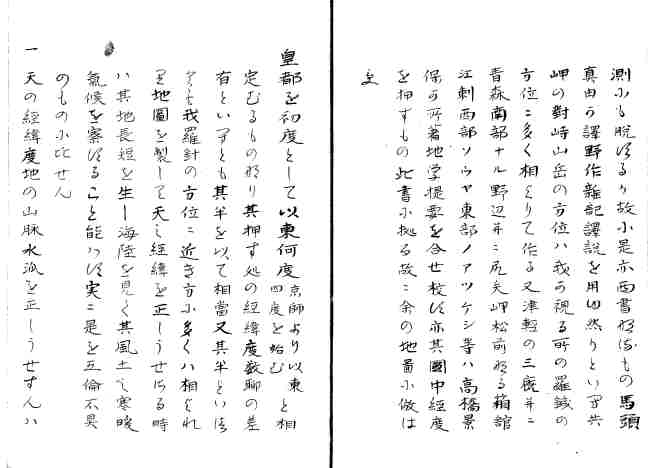 測小も脱するり故小是亦西書なるもの馬頭
真由の譯野作雜記譯説を用ゆ然りといへ共
岬の對峙山岳の方位ハ我の視る所の羅鍼の
方位ニ多く相よりて作る又津軽の三厩并ニ
青森南部ナル野辺并ニ尻矢岬松前なる箱館
江刺西部ソウヤ東部ノアツケシ等ハ高橋景
保の所著地学提要を合せ校す亦其國中経度
を押すもの此書小拠る故ニ余の地圖小倣は
皇都を初度として以東何度京師より以東と相
四度を始む
定むるものなり其押す処の経緯度数聊の差
有といへとも其半を以て相當又其半といは
とも我羅針の方位ニ近き方小多くハ相それ
地圖を製して天之経緯を正しうせさる時
ハ其地長短を生し海陸を見く其風土之寒暖
氣候を察することを能はす実ニ是を五倫不具
のもの小比せん
一 天の経緯度地の山脉水派を正しうせすんハ